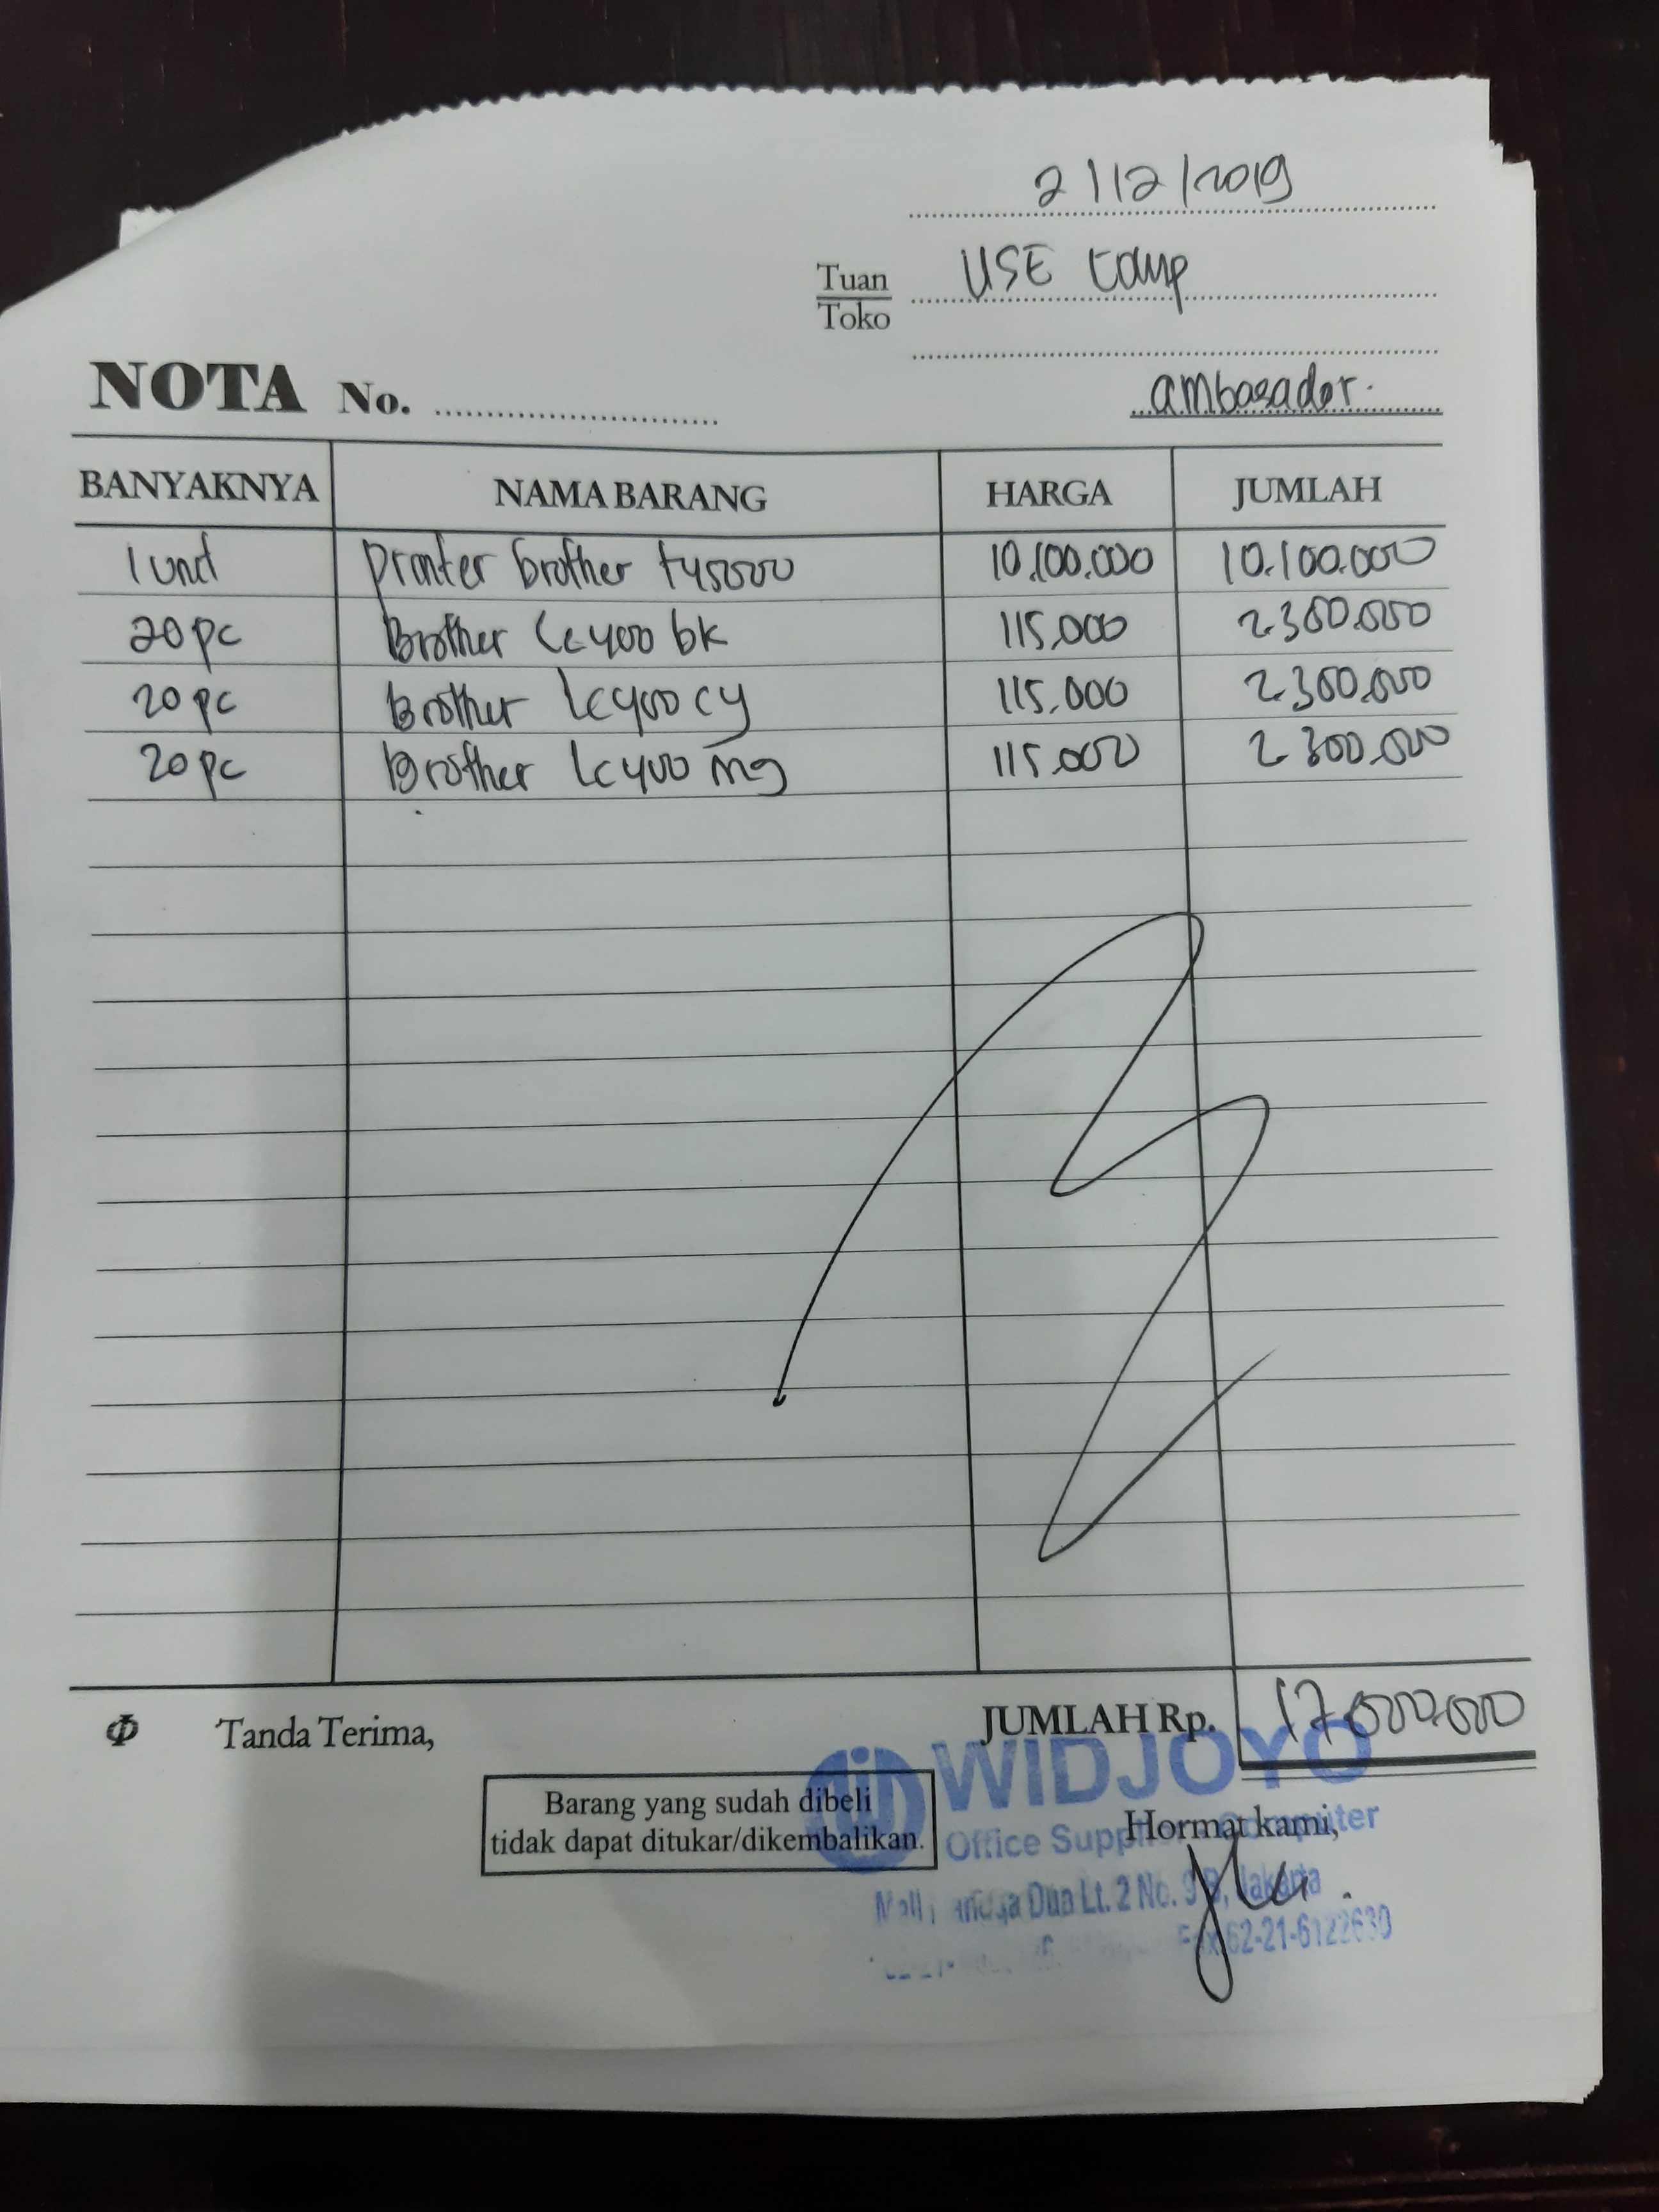 2/12/2019
Tuan
Toko
USE Comp
ambasador.
NOTA No.
BANYAKNYA NAMA BARANG HARGA JUMLAH
1 unit Printer brother t4500 10.100.000 10.100.000
20 pc Brother Lc 400 bk 115.000 2.300.000
20 pc Brother Lc 400 cy 115.000 2.300.000
20 pc Brother Lc 400 mg 115.000 2.300.000
Tanda Terima, JUMLAH Rp. 17.000.000
WIDJOYO
Barang yang sudah dibeli
tidak dapat ditukar/dikembalikan.
Hormat kami,
Office Computer
Dua Lt. 2 No. Jakarta
62-21-6122630